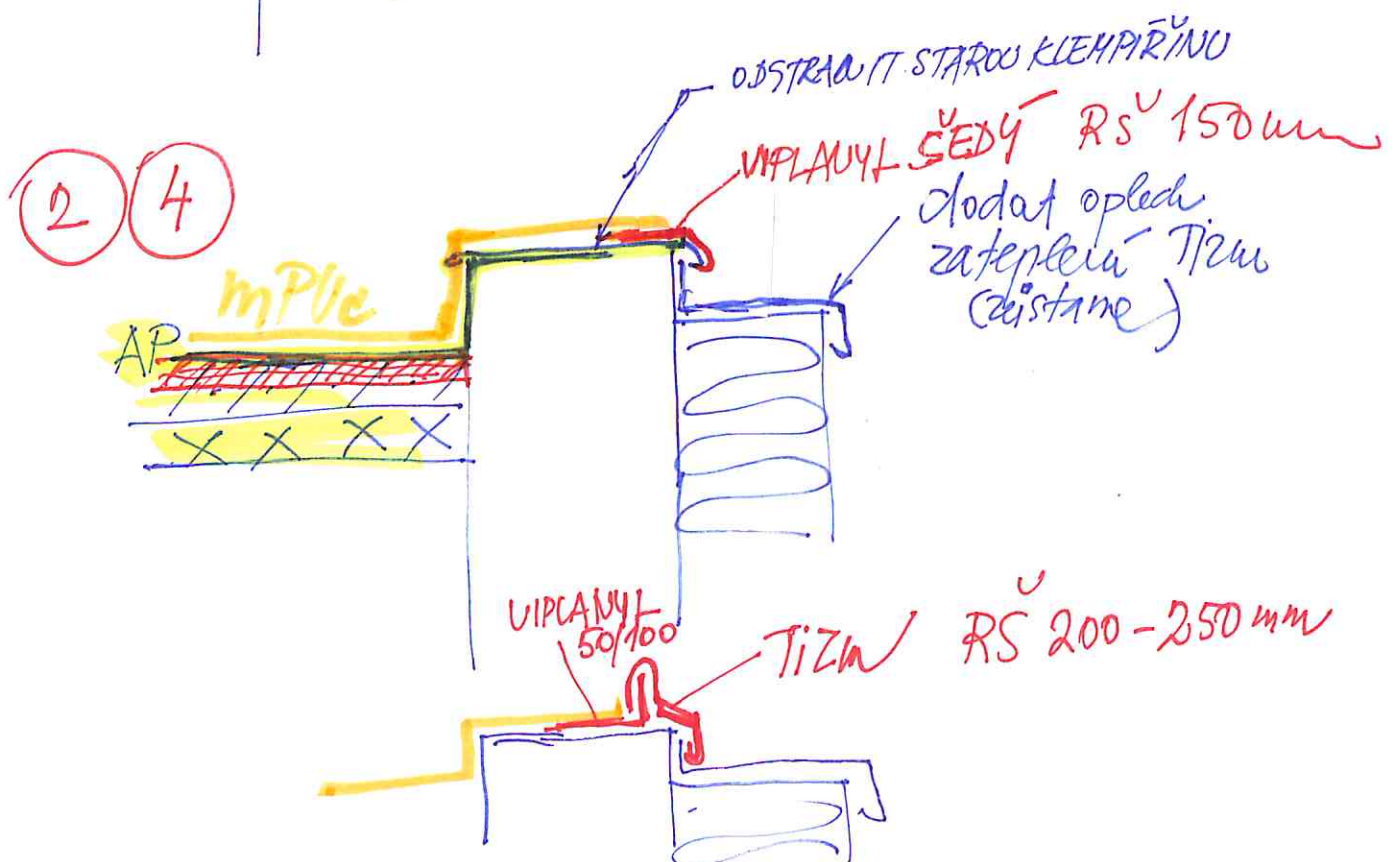 ODSTRANIT STAROU KLEMPÍŘINU
VIPLANYL ŠEDÝ RŠ 150 mm
2 4
dodat oplech.
zateplení TiZn
(zůstane)
mPVC
AP
VIPLANYL
50/100
TiZn RŠ 200-250 mm